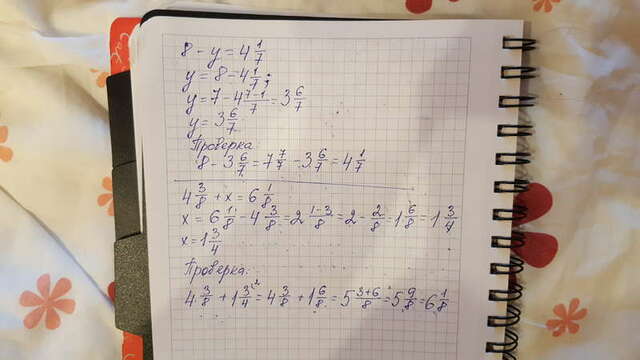 8 - y = 4 1/7
y = 8 - 4 1/7
y = 7 - 4 7-1/7 = 3 6/7
y = 3 6/7
Проверка:
8 - 3 6/7 = 7 7/7 - 3 6/7 = 4 1/7
4 3/8 + x = 6 1/8
x = 6 1/8 - 4 3/8 = 2 1-3/8 = 2 - 2/8 = 1 6/8 = 1 3/4
x = 1 3/4
Проверка:
4 3/8 + 1 3/4 = 4 3/8 + 1 6/8 = 5 3+6/8 = 5 9/8 = 6 1/8